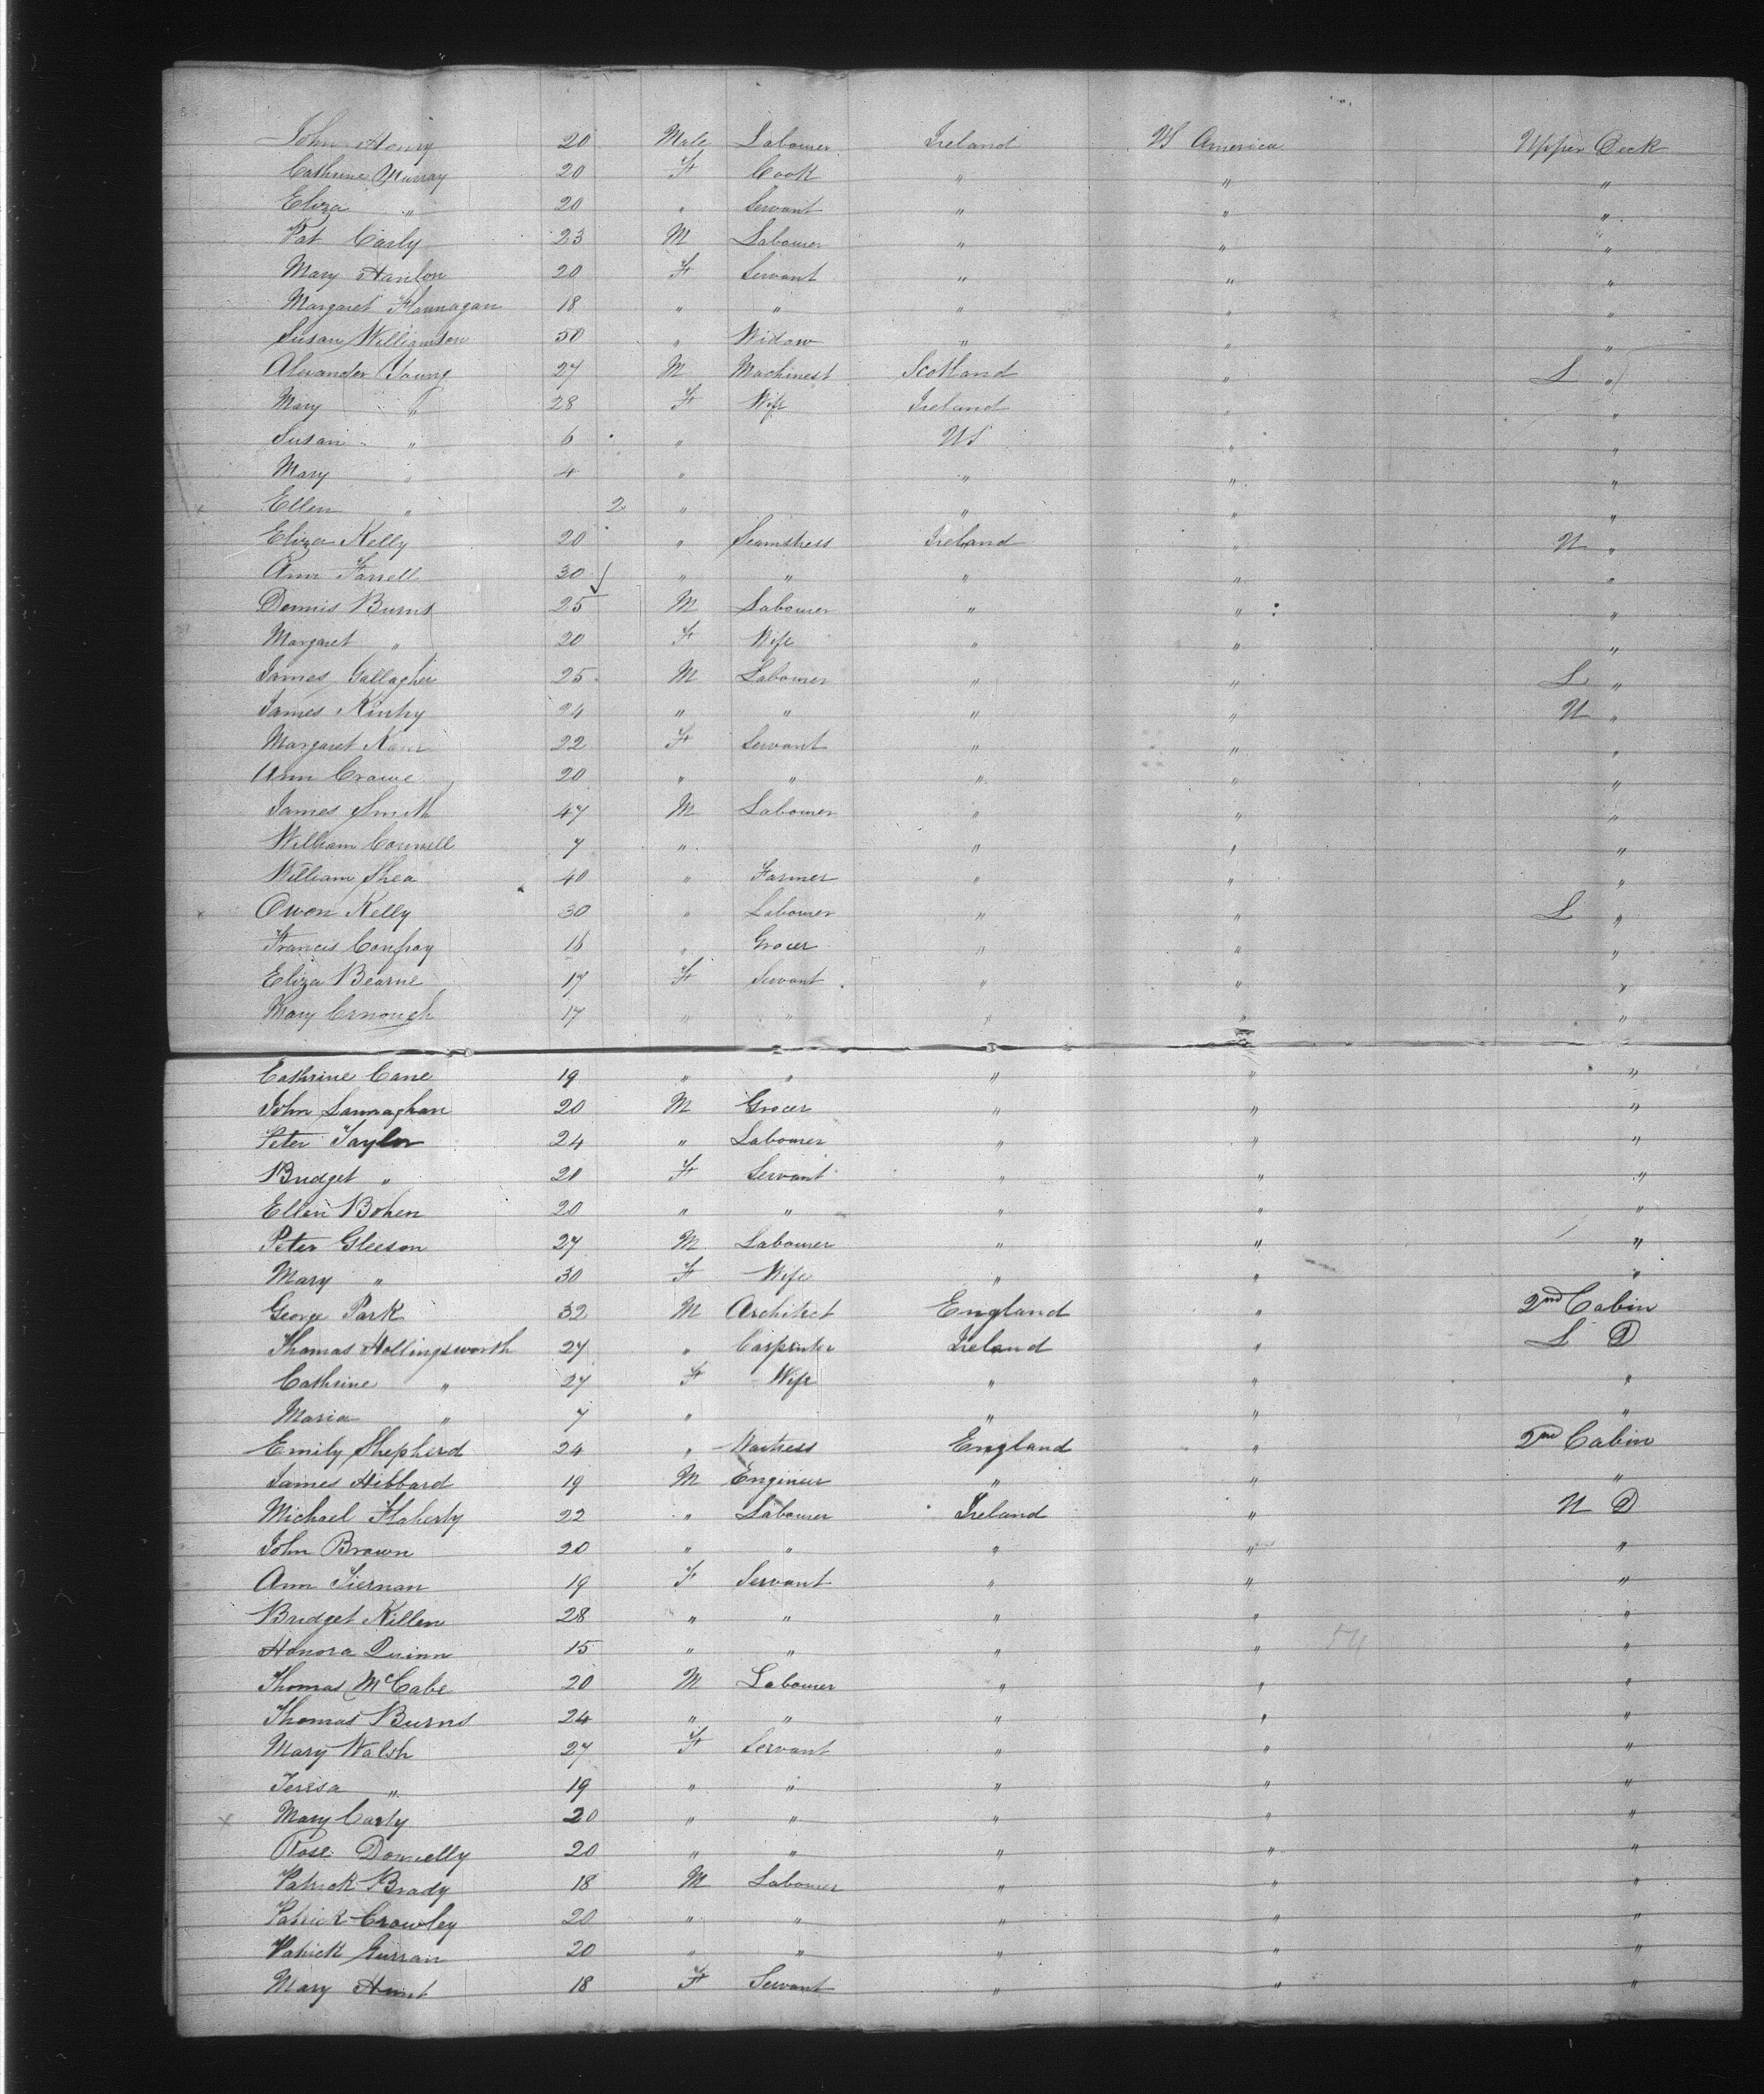 John Henry 20 Male Labourer Ireland US America Upper Deck
Cathrine Murray 20 F Cook " " "
Eliza " 20 " Servant " " "
Pat Carly 23 M Labourer " " "
Mary Hanlon 20 F Servant " " "
Margaret Flannagan 18 " " " " "
Susan Williamson 50 " Widow " " "
Alexander Young 27 M Machinest Scotland " L "
Mary " 28 F Wife Ireland " "
Susan " 6 " US " "
Mary " 4 " " " "
Ellen " 2 " " " "
Eliza Kelly 20 " Seamstress Ireland " U "
Ann Farrell 30 " " " " "
Dennis Burns 25 M Labourer " " "
Margaret " 20 F Wife " " "
James Gallagher 25 M Labourer " " L "
James 24 " " " " U "
Margaret 22 F Servant " " "
Ann Crowe 20 " " " " "
James Smith 47 M Labourer " " "
William Connell 7 " " " "
William Shea 40 " Farmer " " "
Owen Kelly 30 " Labourer " " L "
Francis Confray 16 " Grocer " " "
Eliza Bearne 17 F Servant " " "
Mary 17 " " " " "
Cathrine Cane 19 " " " " "
John Lannaghan 20 M Grocer " " "
Peter Taylor 24 " Labourer " " "
Bridget " 20 F Servant " " "
Ellen Bohen 20 " " " " "
Peter Gleeson 27 M Labourer " " "
Mary " 30 F Wife " " "
George Park 32 M Architect England " 2nd Cabin
Thomas Hollingsworth 27 " Carpenter Ireland " L D
Cathrine " 27 F Wife " " "
Maria " 7 " " " "
Emily Shepherd 24 " Waitress England " 2nd Cabin
James Hibbard 19 M Engineer " " "
Michael Flaherty 22 " Labourer Ireland " U D
John Brown 20 " " " " "
Ann Tiernan 19 F Servant " " "
Bridget Killen 28 " " " " "
Honora Quinn 15 " " " " "
Thomas McCabe 20 M Labourer " " "
Thomas Burns 24 " " " " "
Mary Walsh 27 F Servant " " "
Teresa " 19 " " " " "
Mary Carty 20 " " " " "
Rose Donnelly 20 " " " " "
Patrick Brady 18 M Labourer " " "
Patrick Crowley 20 " " " " "
Patrick Gurran 20 " " " " "
Mary Hunt 18 F Servant " " "